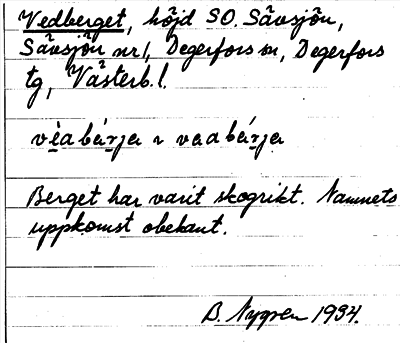 Vedberget, höjd SO. Sävsjön,
Sävsjön nr 1, Degerfors sn, Degerfors
tg, Västerb. l.
vèabærja ~ veabærja
Berget har varit skogrikt. Namnets
uppkomst obekant.
B. Nygren 1934.